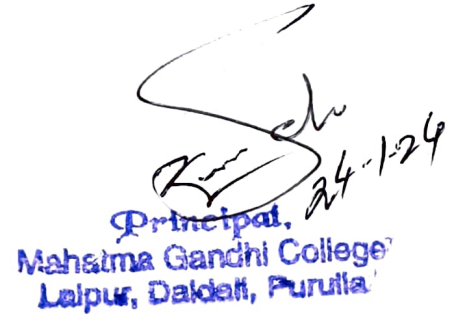 24-1-24
Principal,
Mahatma Gandhi College
Lalpur, Daldali, Purulia